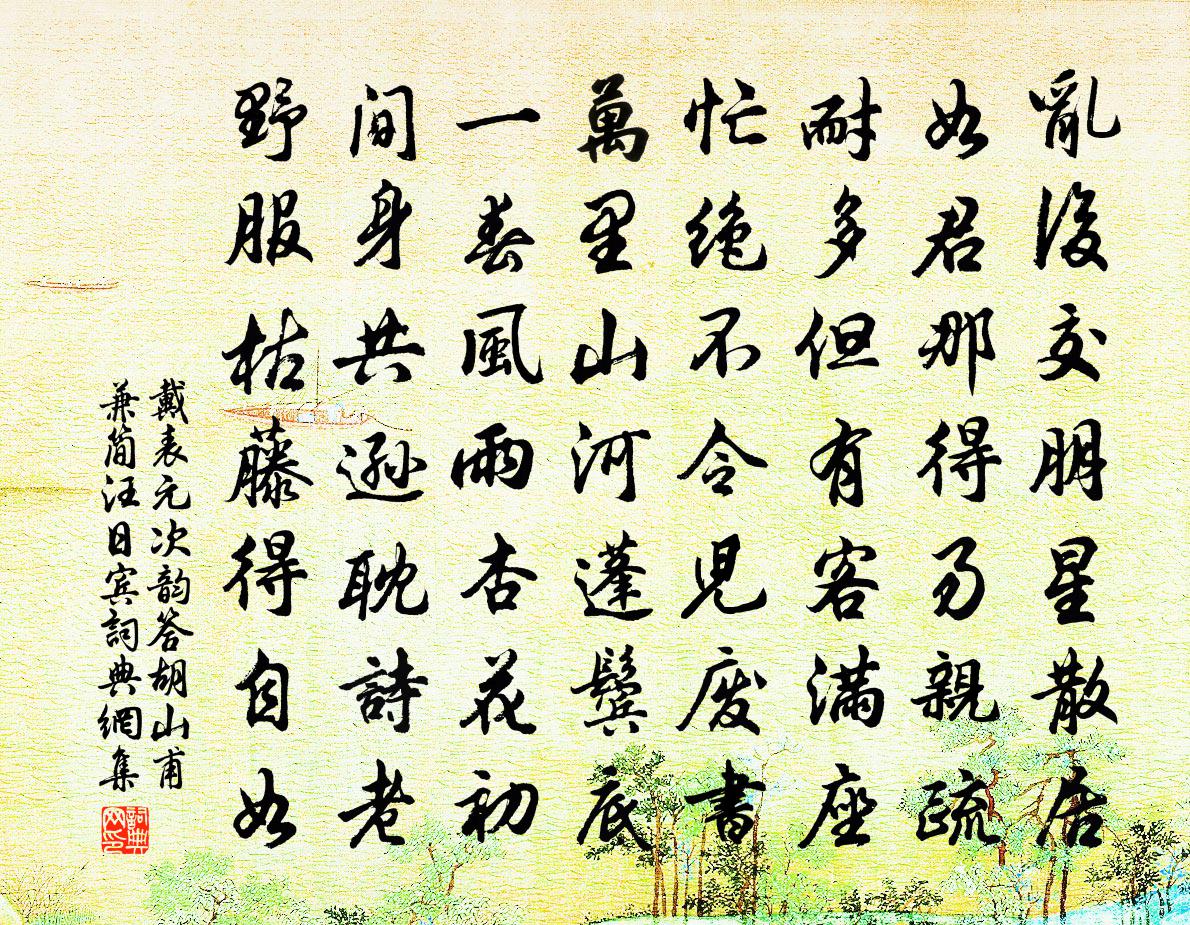 亂後交朋星散居
如君那得易親疏
耐多但有客滿座
忙絶不令兒廢書
萬里山河蓬鬢底
一春風雨杏花初
閒身共遜耽詩老
野服枯藤得自如
戴表元次韵答胡山甫
兼简汪日宾詞典網集
詞典網印